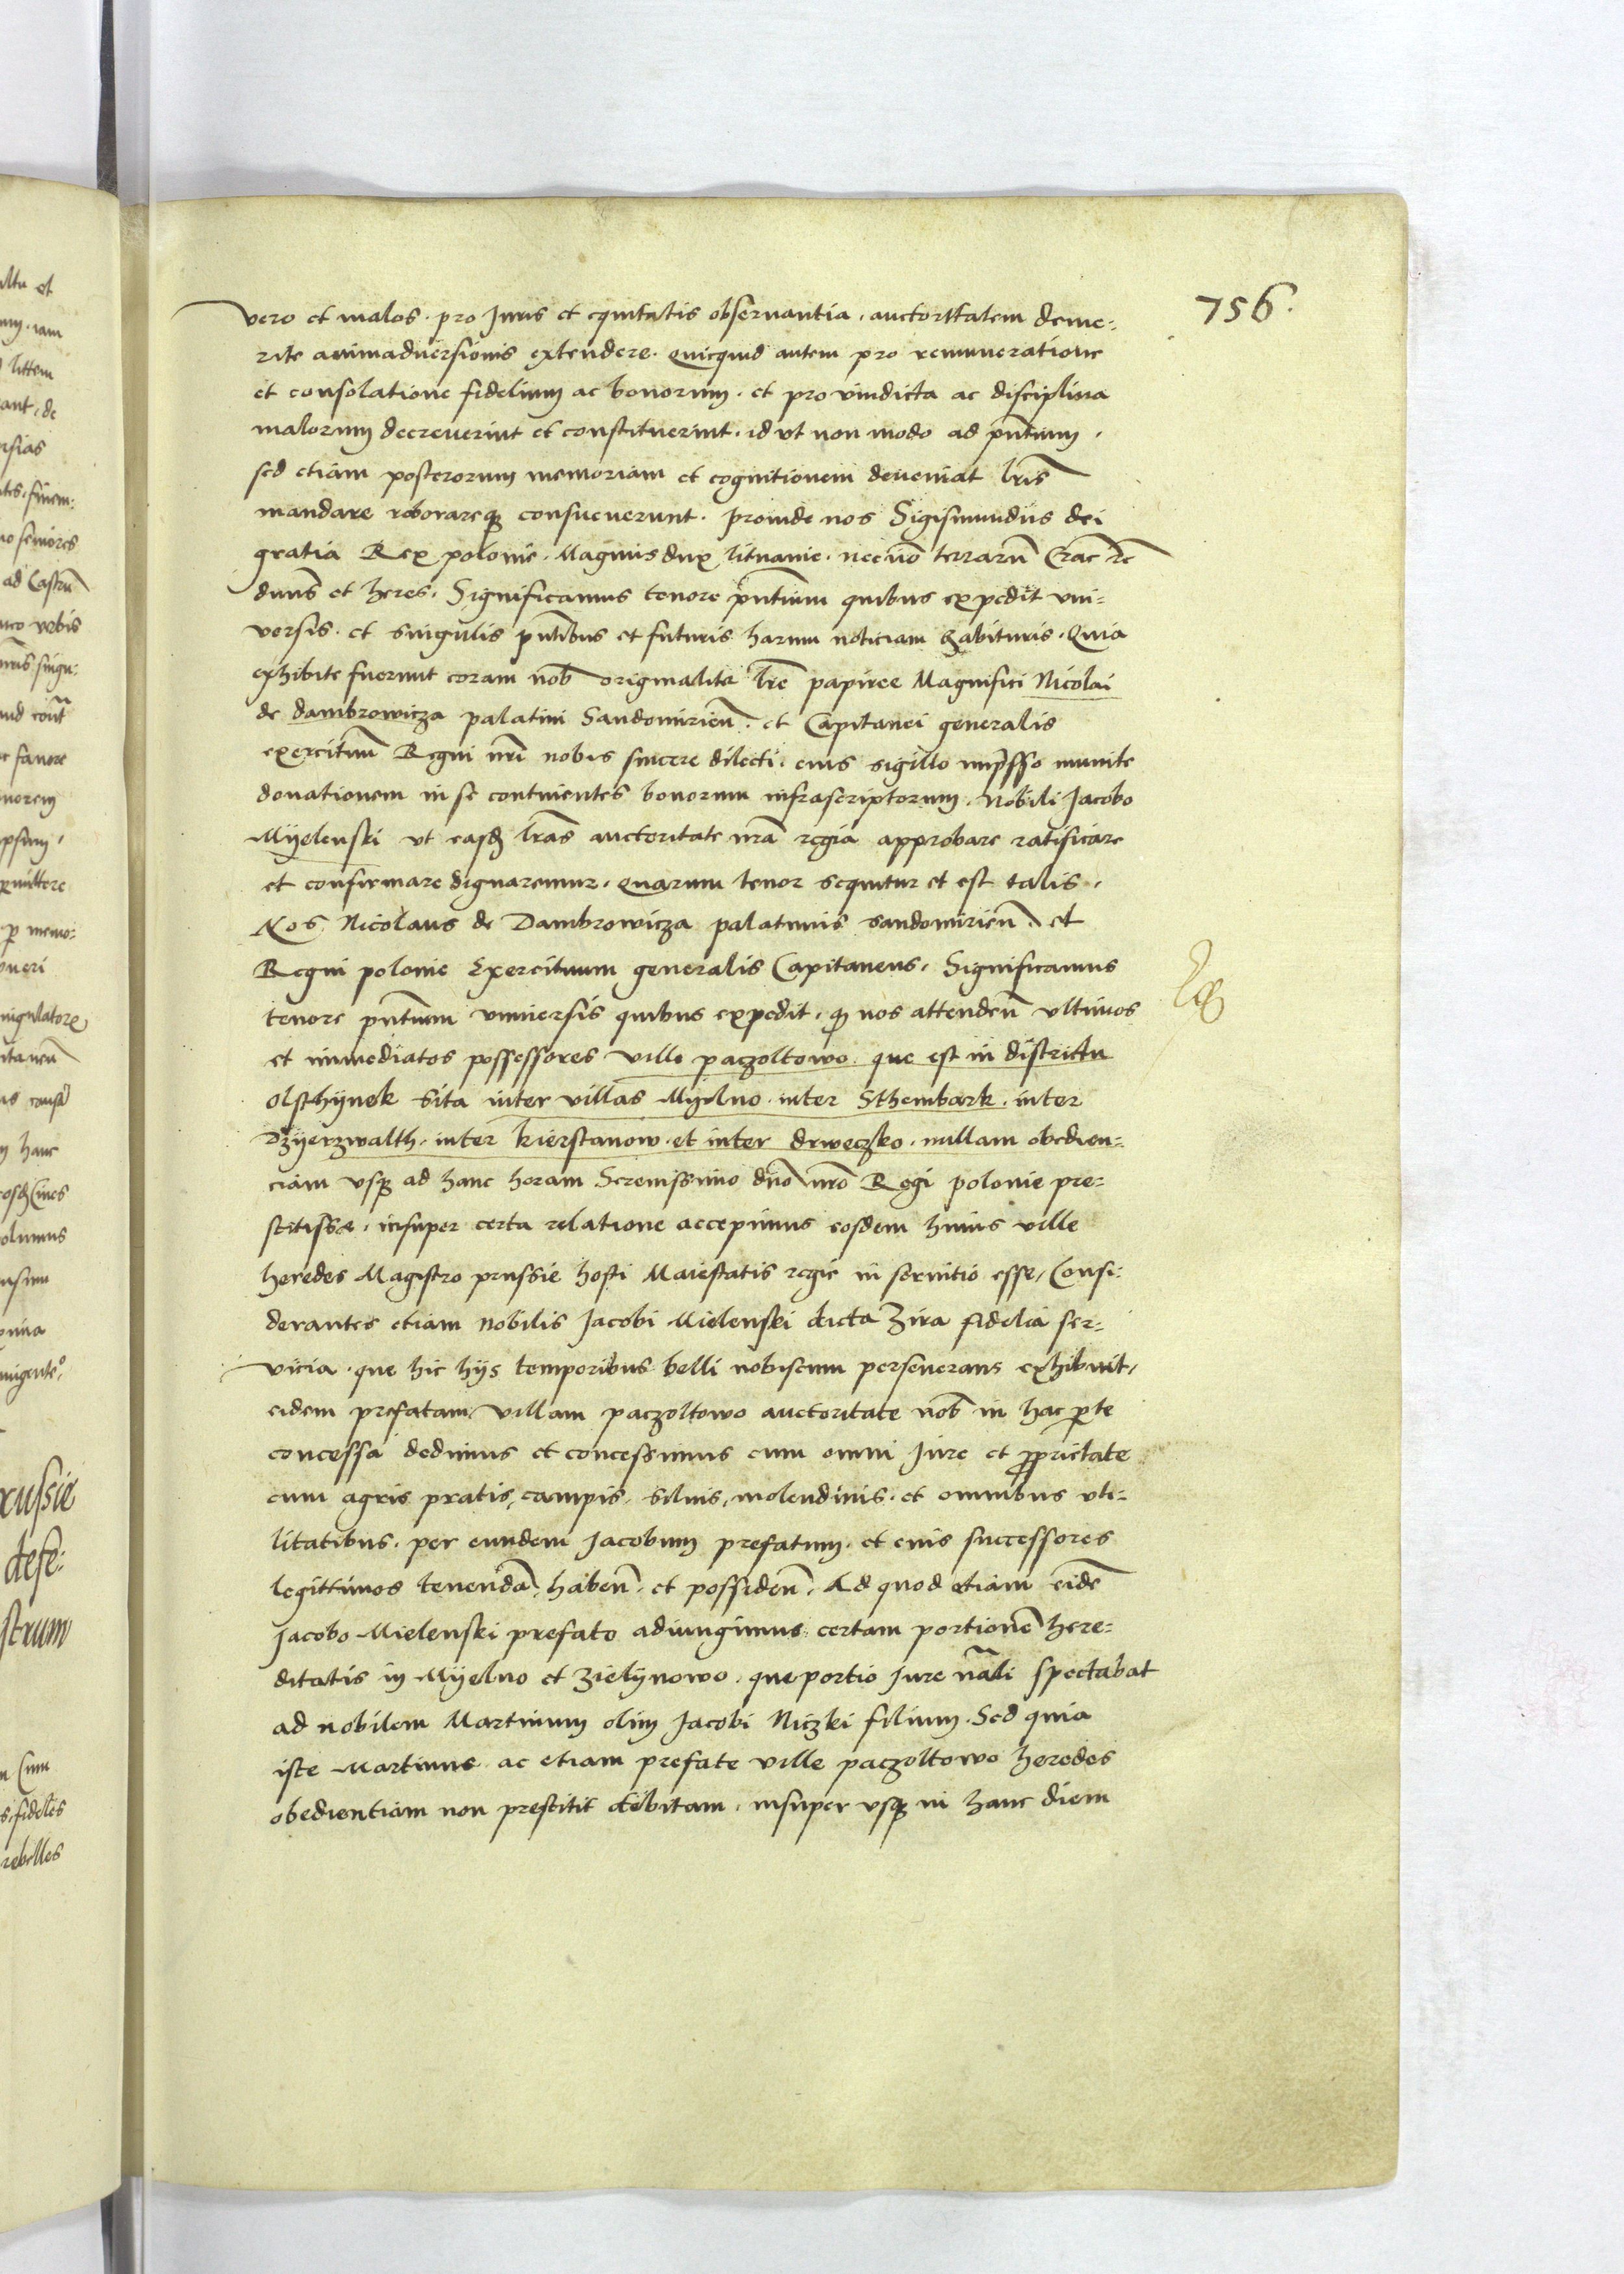 756.
vero et malos. pro Juris et equitatis obseruantia, auctoritatem deme-
rite animaduersionis extendere. quicquid autem pro remuneratione
et consolatione fidelium ac bonorum. et pro vindicta ac disciplina
malorum decreuerint et constituerint. id vt non modo ad pñtium,
sed etiam posterorum memoriam et cognitionem deueniat lris̃
mandare roborareq; consueuerunt. proinde nos Sigismundus dei
gratia Rex polonie. Magnus dux lituanie. necnõ terrarũ Crac̃ ꝛc̃
duns̃ et heres. Significamus tenore pñtium quibus expedit vni-
versis. et singulis pñtibus et futuris harum noticiam habituris. Quia
exhibite fuerunt coram nob̃ originalite lr̃e papiree Magnifici Nicolai
de dambrowicza palatini Sandomirieñ. et Capitanei generalis
exercituũ Regni nr̃i nobis sincere dilecti. eius sigillo imp̃sso munite
donationem in se continentes bonorum infrascriptorum. Nobili Jacobo
Myelenski vt easd̃ lr̃as auctoritate nr̃a regia approbare ratificare
et confirmare dignaremur. quarum tenor sequitur et est talis.
Nos Nicolaus de Dambrowicza palatinus sandomirieñ. et
Regni polonie Exercituum generalis Capitaneus. Significamus
tenore pñtium vniuersis quibus expedit. q; nos attendeñ vltimos
et immediatos possessores ville paczoltowo que est in districtu
olschynek sita inter villas Myelno. inter Sthembark. inter
Dzyerzwalth. inter kierstanow. et inter drweczko. nullam obedien-
ciam vsq; ad hanc horam Serenissimo dño nr̃o Regi polonie pre-
stitisse. insuper certa relatione accepimus eosdem huius ville
heredes Magistro prussie hosti Maiestatis regie in seruitio esse, Consi-
derantes etiam nobilis Jacobi Mielenski dicta Zira fidelia ser-
vicia. que hic hijs temporibus belli nobiscum perseuerans exhibuit,
eidem prefatam villam paczoltowo auctoritate nob̃ in hac p̱te
concessa dedimus et concessimus cum omni Jure et ꝓprietate
cum agris pratis, campis, siluis, molendinis. et omnibus vti-
litatibus. per eundem Jacobum prefatum. et eius successores
legittimos tenendã, habeñ. et possideñ. Ad quod etiam eidẽ
Jacobo Mielenski prefato adiungimus certam portionẽ here-
ditatis in Myelno et zielynowo. que portio Jure nãli spectabat
ad nobilem Martinum olim Jacobi Niczki filium. Sed quia
iste Martinus ac etiam prefate ville paczoltowo heredes
obedientiam non prestitit debitam. insuper vsq; in hanc diem